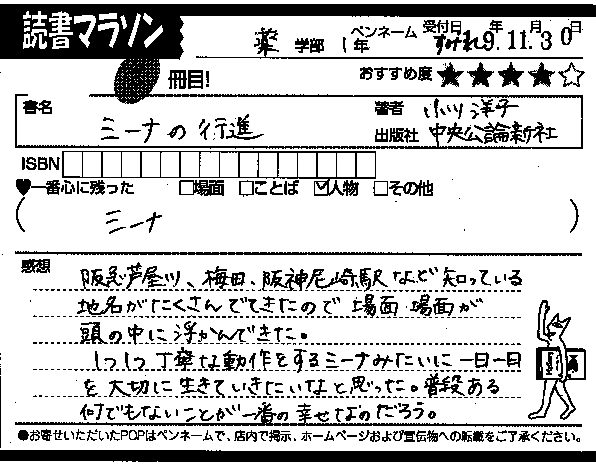 読書マラソン
薬 学部 1年 ペンネーム すみれ 受付日 9年 11月 30日
冊目! おすすめ度 ★★★★☆
書名 ミーナの行進 著者 小川洋子
出版社 中央公論新社
ISBN
♥一番心に残った □場面 □ことば ☑人物 □その他
( ミーナ )
感想 阪急芦屋川、梅田、阪神尼崎駅など知っている
地名がたくさんでてきたので場面場面が
頭の中に浮かんできた。
1つ1つ丁寧な動作をするミーナみたいに一日一日
を大切に生きていきたいなと思った。普段ある
何でもないことが一番の幸せなのだろう。
●お寄せいただいたPOPはペンネームで、店内で掲示、ホームページおよび宣伝物への転載をご了承ください。